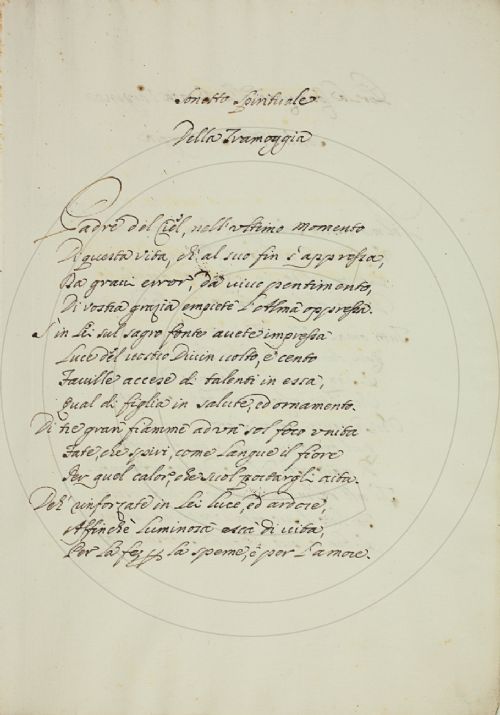 Sonetto Spirituale
Della Tramoggia
Padre del Ciel, nell'ultimo momento
Di questa vita, ch'al suo fin s'appressa,
Da gravi error, da vivo pentimento,
Di vostra grazia empiete l'Alma oppressa.
S'in Lei sul sagro fonte avete impressa
Luce del vostro Divin volto, e cento
Faville accese di talenti in essa,
Qual di figlia in salute, ed ornamento.
Di tre gran fiamme ad un sol foco unita
Fate che spiri, come langue il fiore
Per quel calor, che suol portargli aita.
Deh' rinforzate in Lei luce, ed ardore,
Affinchè luminosa esca di vita,
Per la fe, per la speme, e per l'amore.